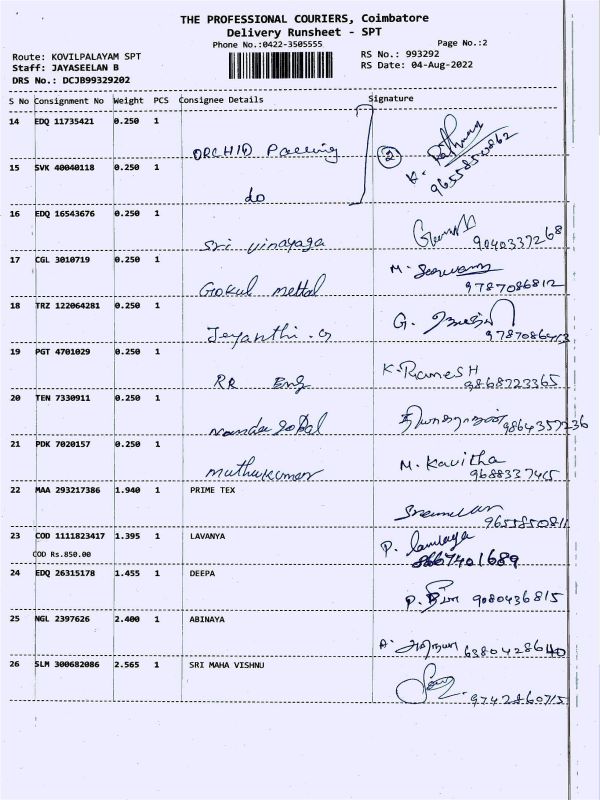 THE PROFESSIONAL COURIERS, Coimbatore
Delivery Runsheet - SPT
Phone No.:0422-3505555
Page No.:2
Route: KOVILPALAYAM SPT
RS No.: 993292
Staff: JAYASEELAN B
RS Date: 04-Aug-2022
DRS No.: DCJB99329202
S No Consignment No Weight PCS Consignee Details Signature
14 EDQ 11735421 0.250 1
ORCHID 2 K.
15 SVK 40040118 0.250 1
do
16 EDQ 16543676 0.250 1
Sri Vinayaga 9040337268
17 CGL 3010719 0.250 1
Gokul Mettal M. 9787086812
18 TRZ 122064281 0.250 1
Jeyanthi . G G.
19 PGT 4701029 0.250 1
RR Eng K. RamesH 9868723365
20 TEN 7330911 0.250 1
Nandagopal 9864357236
21 PDK 7020157 0.250 1
Muthukumar M. Kavitha 9688337415
22 MAA 293217386 1.940 1 PRIME TEX
9655850811
23 COD 1111823417 1.395 1 LAVANYA
COD Rs.850.00 P. 8667401689
24 EDQ 26315178 1.455 1 DEEPA
P. 9080436815
25 NGL 2397626 2.400 1 ABINAYA
A. 6380428640
26 SLM 300682086 2.565 1 SRI MAHA VISHNU
9742860715